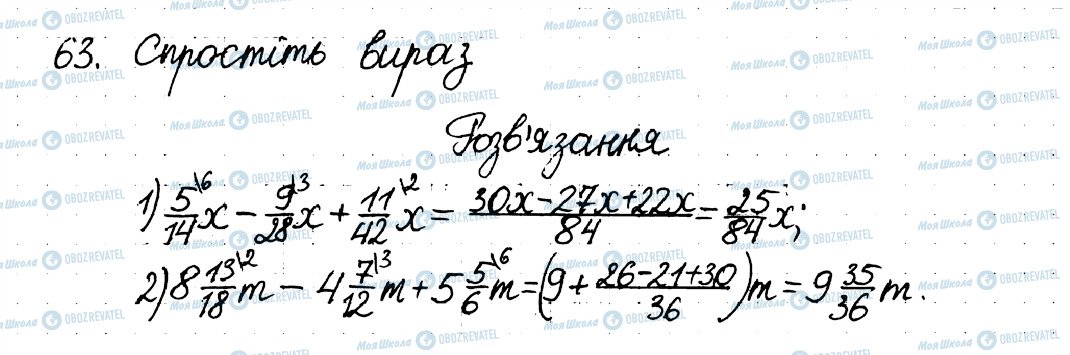 63. Спростіть вираз
Розв'язання
1) 5/14\6 x − 9/28\3 x + 11/42\2 x = 30x − 27x + 22x / 84 = 25/84 x;
2) 8 13/18\2 m − 4 7/12\3 m + 5 5/6\6 m = (9 + 26 − 21 + 30 / 36) m = 9 35/36 m.
Моя Школа OBOZREVATEL